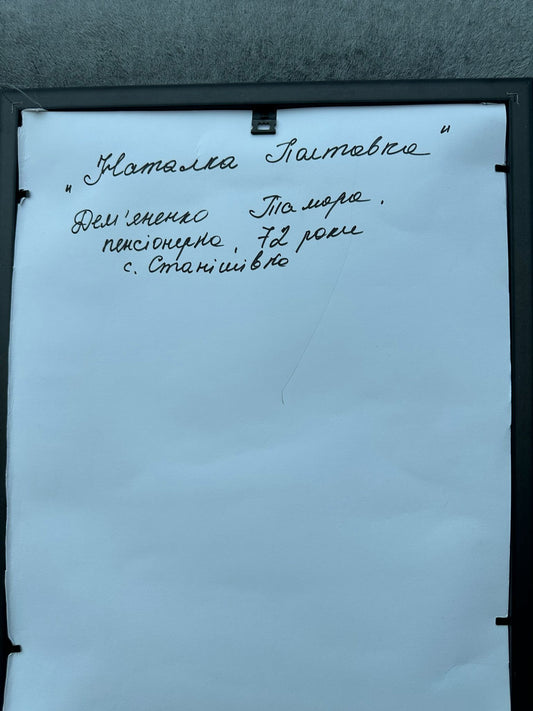 "Наталка Полтавка"
Дем'яненко Тамара,
пенсіонерка, 72 роки
с. Станішівка